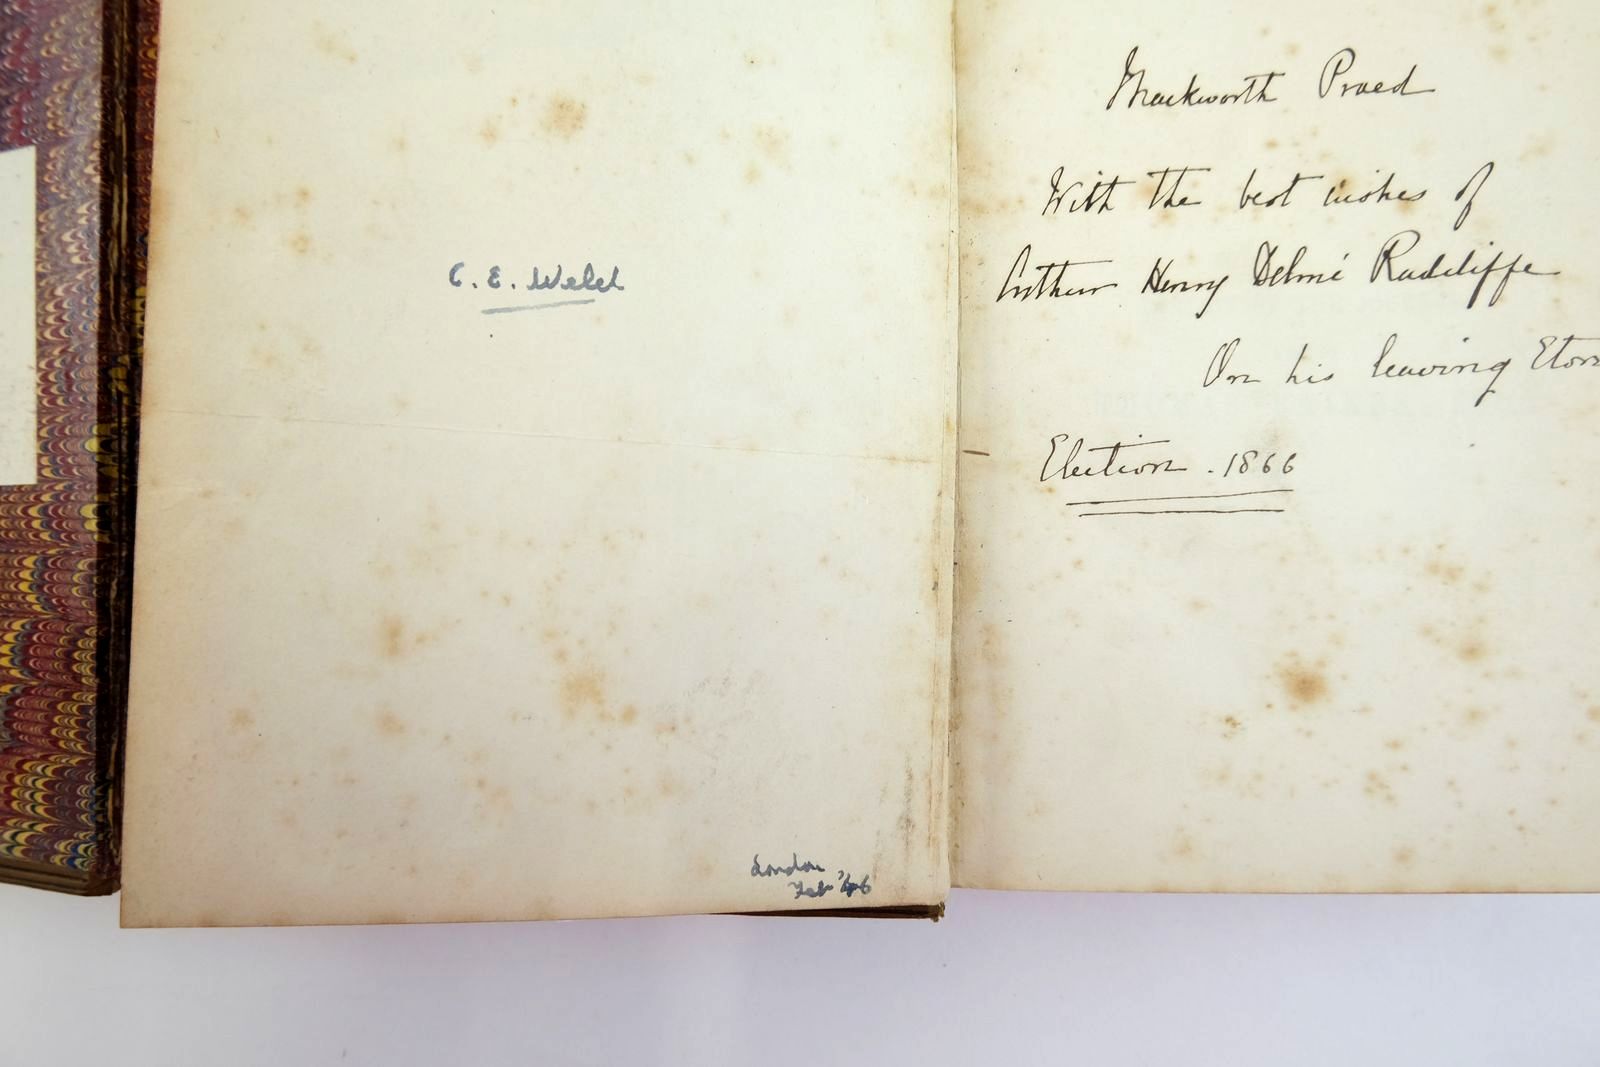 C. E. Welch
London
Feb '46
Mackworth Praed
With the best wishes of
Arthur Henry Delmé Radcliffe
On his leaving Eton
Election. 1866